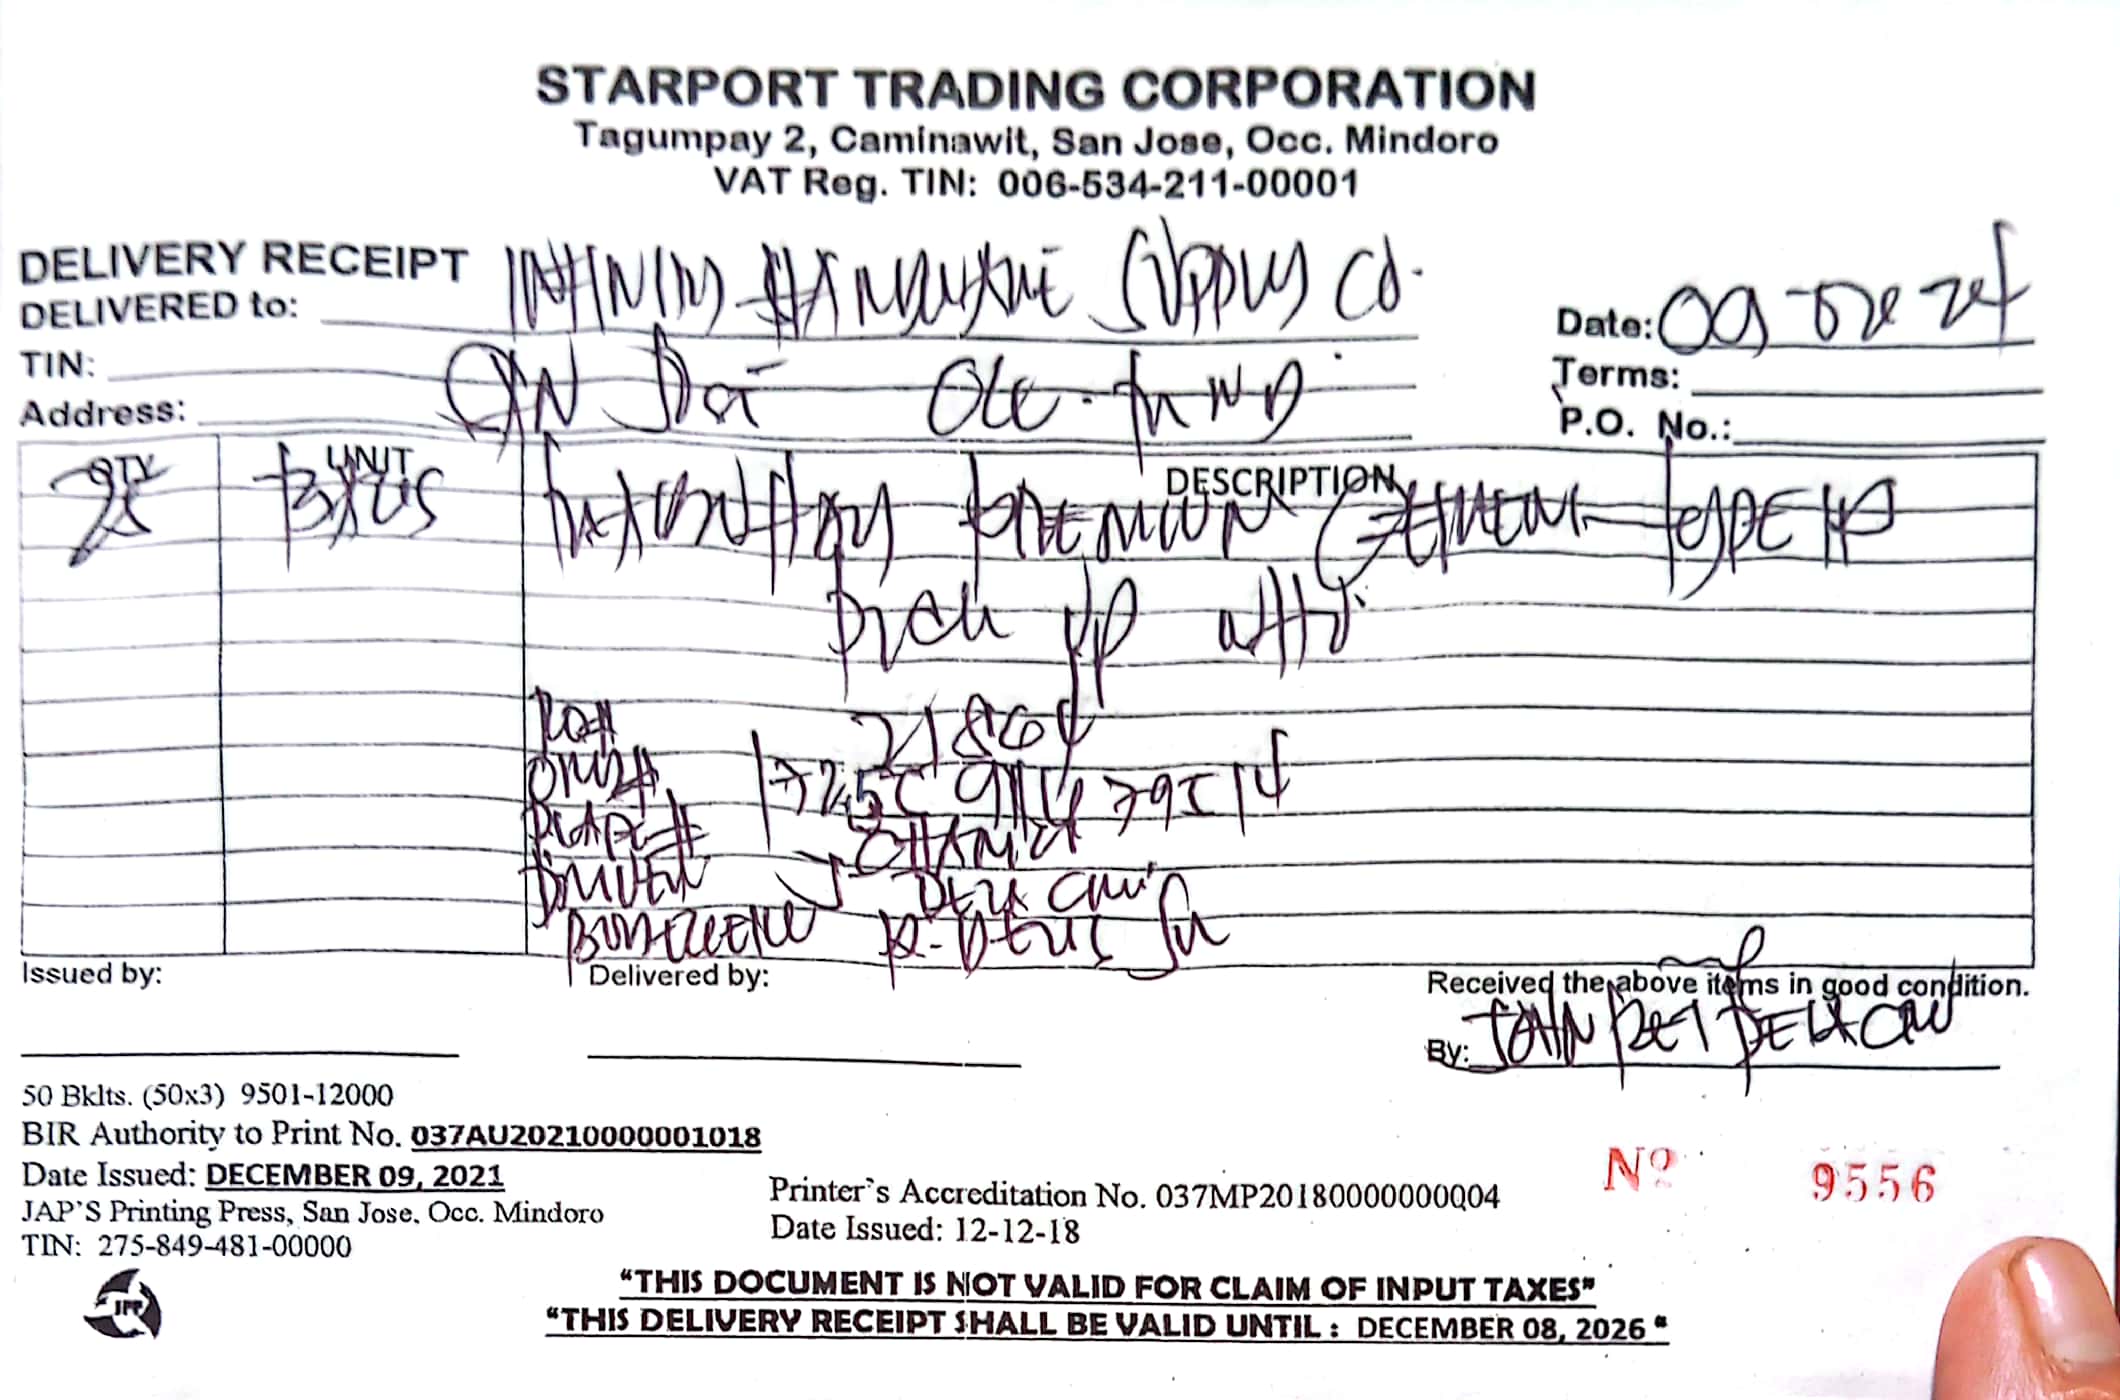 STARPORT TRADING CORPORATION
Tagumpay 2, Caminawit, San Jose, Occ. Mindoro
VAT Reg. TIN: 006-534-211-00001
DELIVERY RECEIPT
DELIVERED to: Hardware Supply Co.
Date: 09-02-24
TIN:
Terms:
Address: San Jose Occ. Mind
P.O. No.:
QTY UNIT DESCRIPTION
Bags Premium Cement Type 1P
Pick up
21864
Plate #
Driver Dela Cruz
Issued by:
Delivered by:
Received the above items in good condition.
By: JOHN REY DELA CRUZ
50 Bklts. (50x3) 9501-12000
BIR Authority to Print No. 037AU20210000001018
Date Issued: DECEMBER 09, 2021
JAP'S Printing Press, San Jose, Occ. Mindoro
TIN: 275-849-481-00000
Printer's Accreditation No. 037MP20180000000004
Date Issued: 12-12-18
Nº 9556
JPP
"THIS DOCUMENT IS NOT VALID FOR CLAIM OF INPUT TAXES"
"THIS DELIVERY RECEIPT SHALL BE VALID UNTIL : DECEMBER 08, 2026"